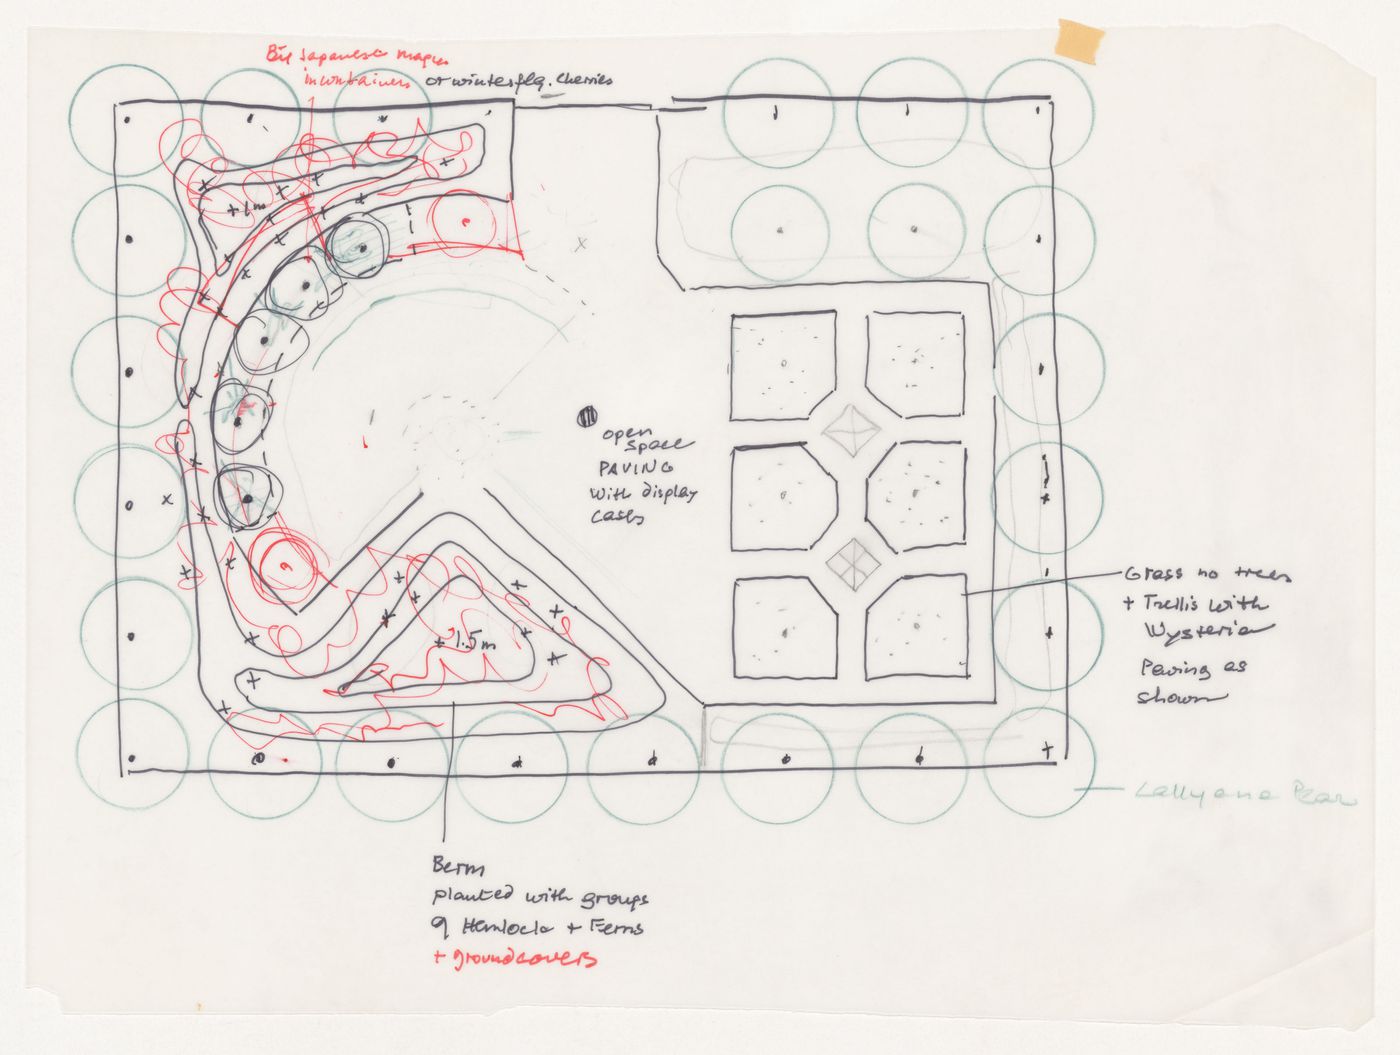 Big Japanese maples
in containers or winterflg. cherries
+ 1 m
open
space
PAVING
with display
cases
+ 1.5 m
Grass no trees
+ Trellis with
Wysteria
Paving as
shown
Pear
Berm
planted with groups
of Hemlock + Ferns
+ groundcovers